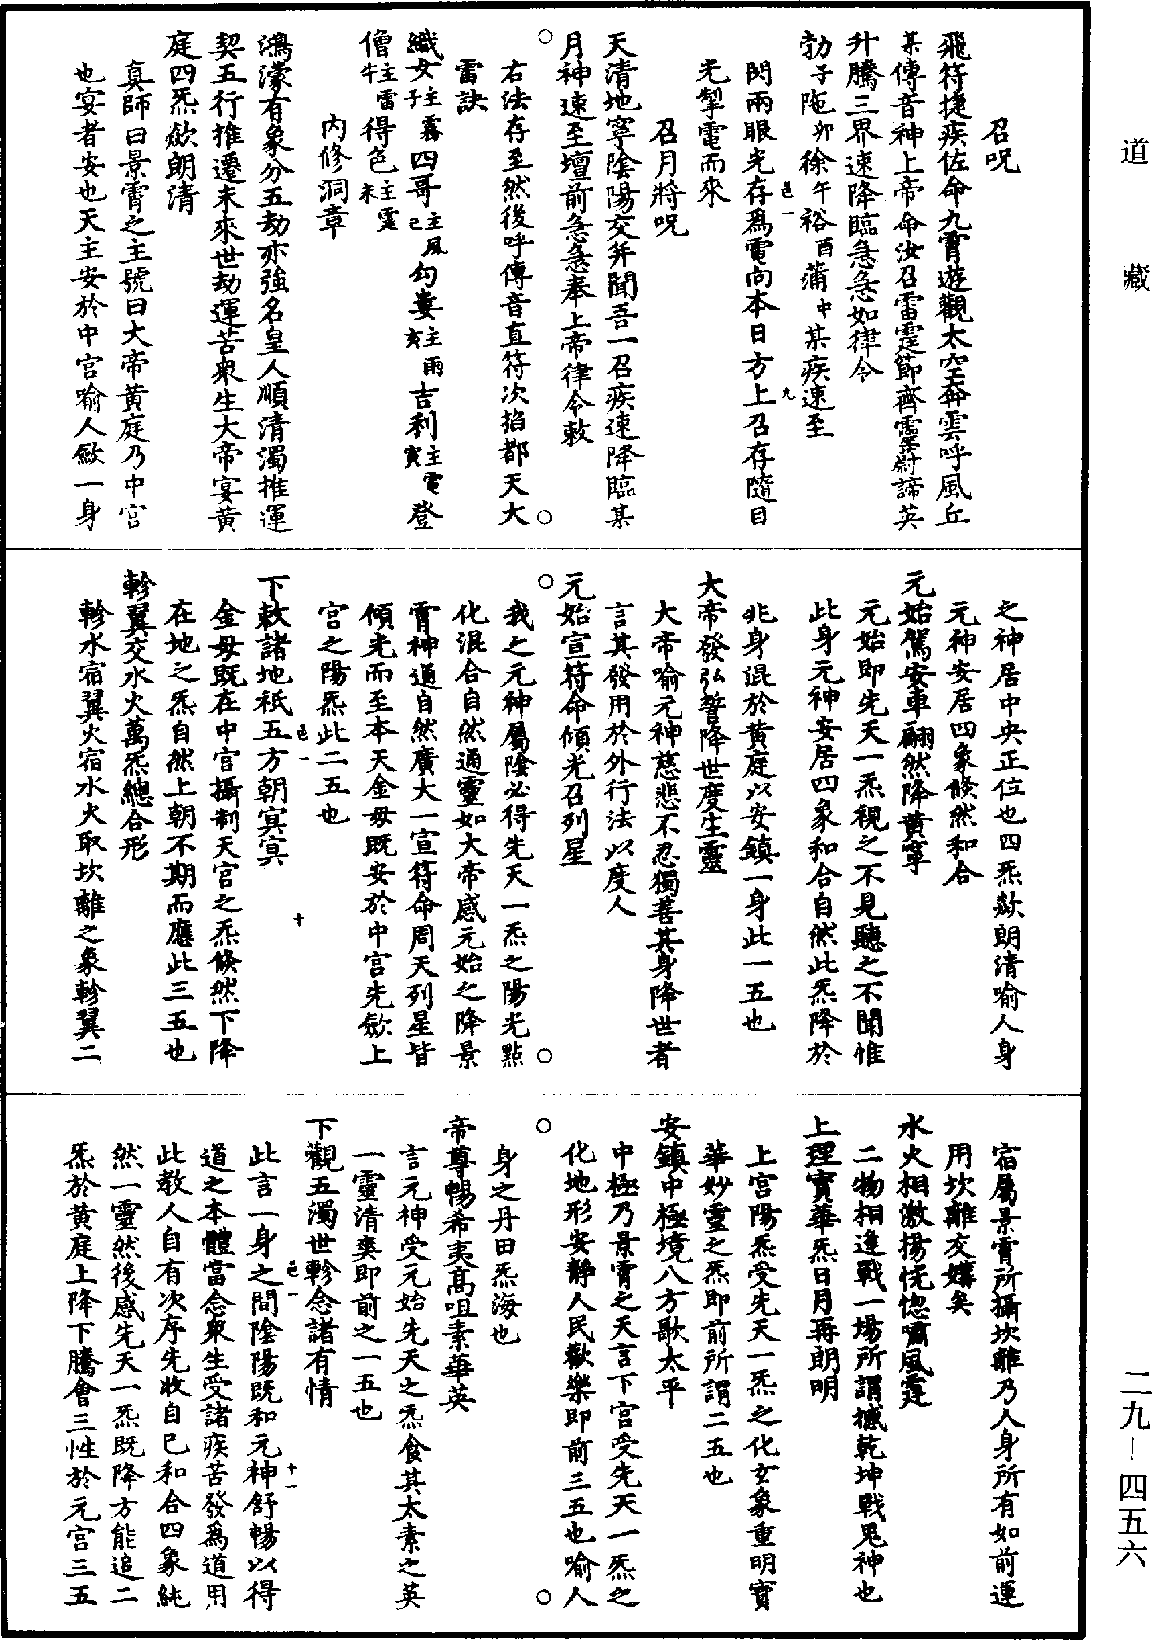 道藏
召呪
飛符捷疾佐命九霄遊觀太空奔雲呼風丘
某傳音神上帝命汝召雷霆節齊靈尉諦英
升騰三界速降臨急急如律令
勃子陁卯徐午裕酉蒲中某疾速至
閃兩眼光存爲電向本日方上召存隨目
光掣電而來
召月將呪
天清地寧陰陽交并聞吾一召疾速降臨某
月神速至壇前急急奉上帝律令敕
右法存至然後呼傳音直符次掐都天大
雷訣
織女主霧子四哥主風己勾婁主雨亥吉利主電寅登
僧主雷牛得色主霆未
內修洞章
鴻濛有象分五劫亦強名皇人順清濁推運
契五行推遷末來世劫運苦衆生大帝宴黄
庭四炁歘朗清
真師曰景霄之主號曰大帝黄庭乃中宫
也宴者安也天主安於中宫喻人歛一身
之神居中央正位也四炁歘朗清喻人身
元神安居四象倏然和合
元始駕安車翩然降黄寧
元始即先天一炁視之不見聽之不聞惟
此身元神安居四象和合自然此炁降於
兆身混於黄庭以安鎮一身此一五也
大帝發弘誓降世度生靈
大帝喻元神慈悲不忍獨善其身降世者
言其發用於外行法以度人
元始宣符命傾光召列星
我之元神屬陰必得先天一炁之陽光點
化混合自然通靈如大帝感元始之降景
霄神通自然廣大一宣符命周天列星皆
傾光而至本天金母既安於中宫先歛上
宫之陽炁此二五也
下敕諸地祇五方朝冥冥
金母既在中宫攝制天宫之炁倏然下降
在地之炁自然上朝不期而應此三五也
軫翼交水火萬炁總合形
軫水宿翼火宿水火取坎離之象軫翼二
宿屬景霄所攝坎離乃人身所有如前運
用坎離交媾矣
水火相激揚恍惚嘯風霆
二物相逢戰一場所謂撼乾坤戰鬼神也
上理寶華炁日月再朗明
上宫陽炁受先天一炁之化玄象重明寶
華妙靈之炁即前所謂二五也
安鎮中極境八方歌太平
中極乃景霄之天言下宫受先天一炁之
化地形安静人民歡樂即前三五也喻人
身之丹田炁海也
帝尊暢希夷高咀素華英
言元神受元始先天之炁食其太素之英
一靈清爽即前之一五也
下觀五濁世軫念諸有情
此言一身之間陰陽既和元神舒暢以得
道之本體當念衆生受諸疾苦發爲道用
此教人自有次序先收自己和合四象純
然一靈然後感先天一炁既降方能追二
炁於黄庭上降下騰會三性於元宫三五
二九-四五六